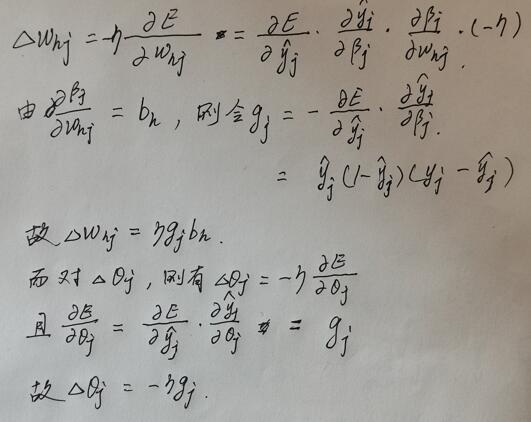 Δw_hj = -η ∂E/∂w_hj = ∂E/∂ŷ_j · ∂ŷ_j/∂β_j · ∂β_j/∂w_hj · (-η)
由 ∂β_j/∂w_hj = b_h, 则令 g_j = - ∂E/∂ŷ_j · ∂ŷ_j/∂β_j.
= ŷ_j (1-ŷ_j)(y_j - ŷ_j)
故 Δw_hj = η g_j b_h.
而对 Δθ_j, 则有 Δθ_j = -η ∂E/∂θ_j
且 ∂E/∂θ_j = ∂E/∂ŷ_j · ∂ŷ_j/∂θ_j = g_j
故 Δθ_j = -η g_j.